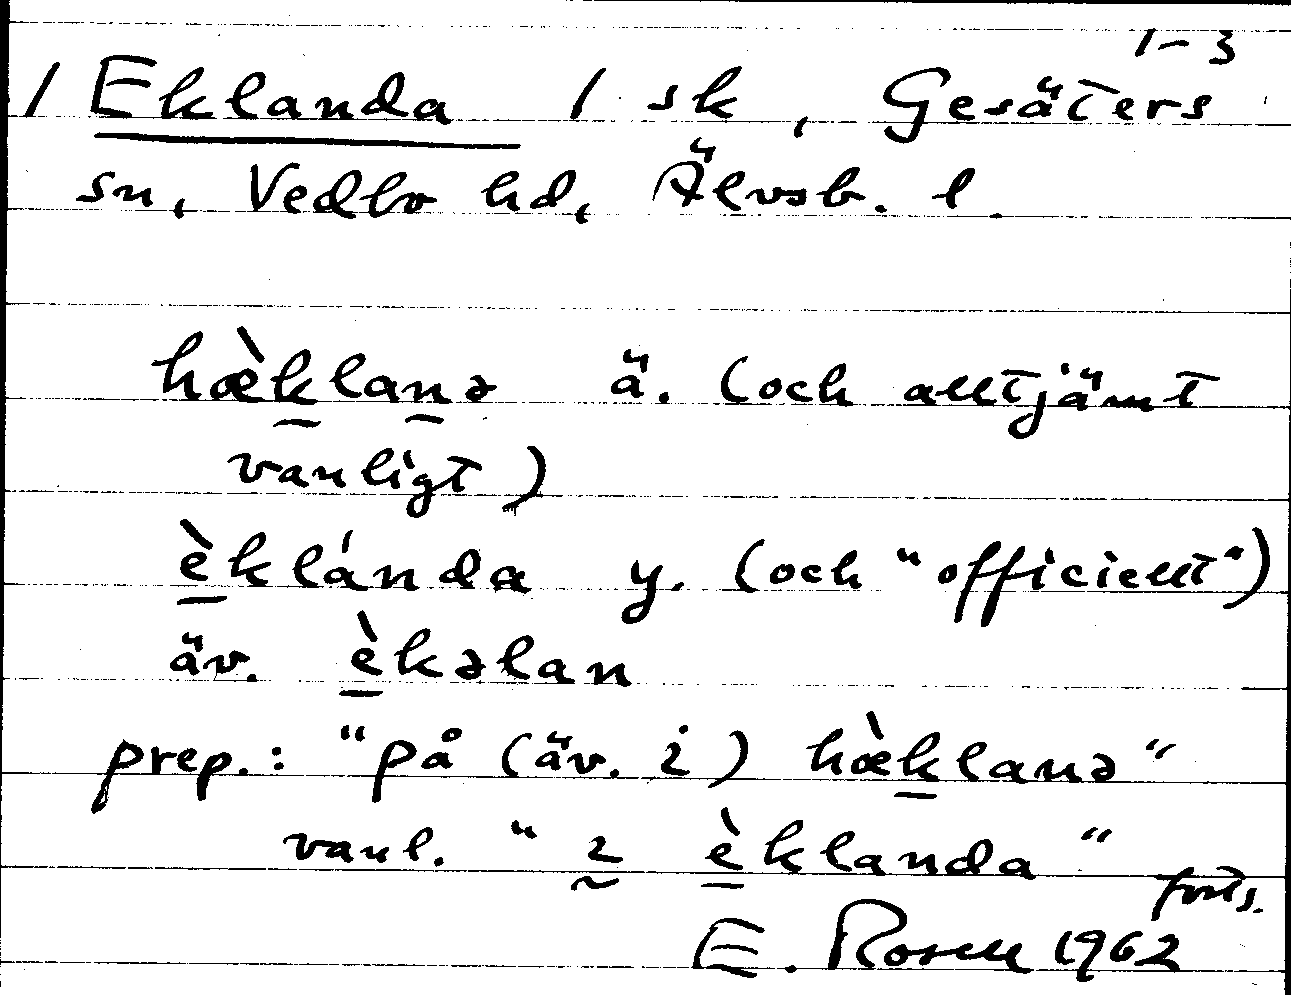 1-3
1 Eklanda 1 sk, Gesäters
sn, Vedbo hd, Älvsb. l.
hæ̀klanə ä. (och alltjämt
vanligt)
èklánda y. (och "officiellt")
äv. èkəlan
prep.: "på (äv. i) hæ̀klanə"
vanl. "ı èklanda"
forts.
E. Rosell 1962